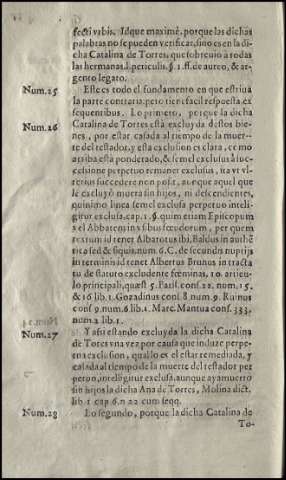 fecti vxbis. Idque maximè, porque las dichas
palabras no se pueden verificar, sino es en la di
cha Catalina de Torres, que sobreuiuio à todas
las hermanas l. periculis. §. 1. ff. de aureo, & ar-
gento legato.
Num.25 Este es todo el fundamento en que estriua
la parte contraria, pero tiene facil respuesta ex
sequentibus. Lo primero, porque la dicha
Num.26 Catalina de Torres està excluyda destos bie-
nes, por estar casada al tiempo de la muer-
te del testador, y esta exclusion es clara, como
arriba està ponderado, & semel exclusus à suc-
cesione perpetuo remanet exclusus, ita vt vl-
terius succedere non possit, aunque aquel que
le excluyò muera sin hijos, ni descendientes,
quinimo linea semel exclusa perpetuo inteli-
gitur exclusa, cap. 1. §. quin etiam Episcopum
& Abbatem in vsibus feudorum, per quem
textum id tenet Albarotus ibi, Baldus in authé
tica sed & si quis, num. 6. C. de secundis nuptijs
in terminis id tenet Albertus Brunus in tracta
tu de statuto excludente fœminas, 10. articu-
lo principali, quæst. 5. Paris. cons. 22. num. 15.
& 16. lib. 1. Gozadinus cons. 8. num. 9. Ruinus
cons. 9. num. 6. lib. 1. Marc. Mantua cons. 333.
num. 2. lib. 1.
Num.27 Y assi estando excluyda la dicha Catalina
de Torres vna vez por causa que induze perpe-
tua exclusion, qual lo es el estar remediada, y
casada al tiempo de la muerte del testador per
petuo, intelligitur exclusa, aunque aya muerto
sin hijos la dicha Ana de Torres, Molina dict.
lib. 1. cap. 6. n. 22. cum seqq.
Num.28 Lo segundo, porque la dicha Catalina de
To-